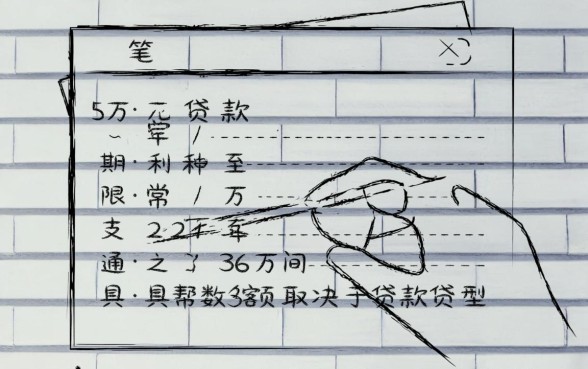 笔
5万·元贷款
~ 军 /
期·利种至
限·常 / 万
支 2.2千年
通·之了36万间
具·具帮数多额取决于贷款贷型